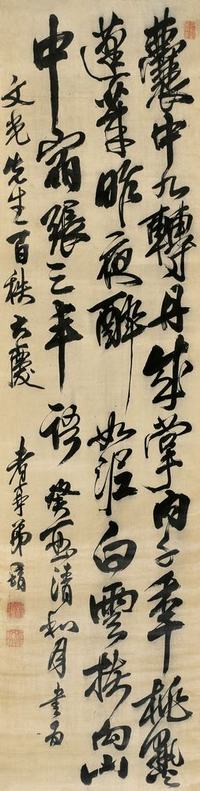 囊中九轉丹成掌內千年桃熟
蓬萊昨夜醉如泥白雲扶向山
中宿張三丰語癸酉清和月書為
文光先生百秩大慶